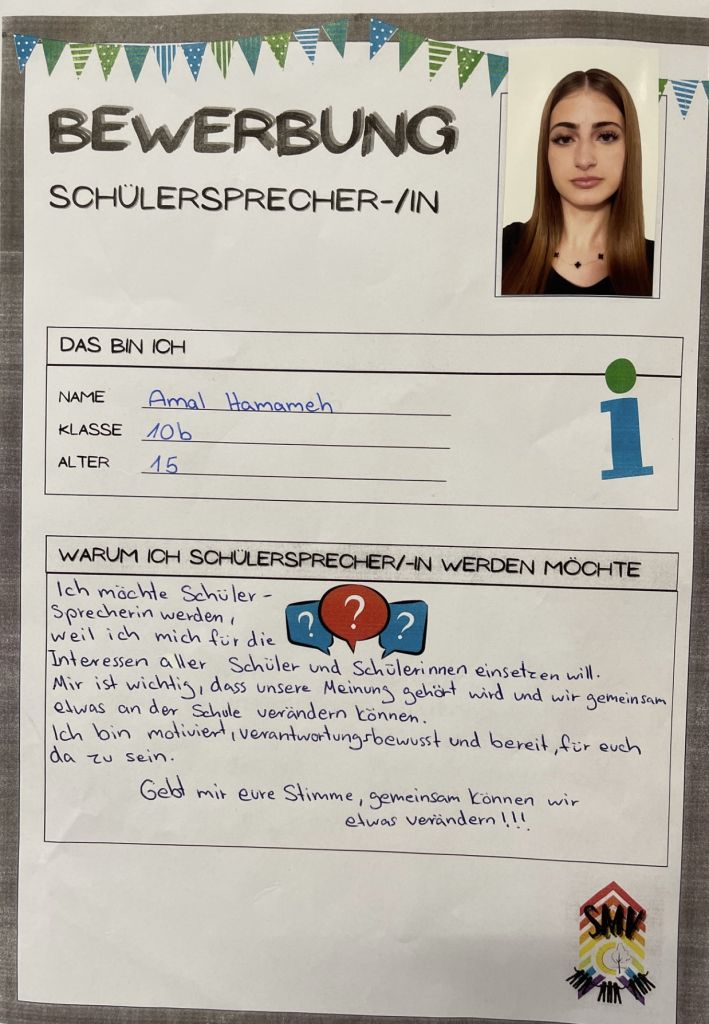 BEWERBUNG
SCHÜLERSPRECHER-/IN
DAS BIN ICH
NAME Amal Hamameh
KLASSE 10b
ALTER 15
i
WARUM ICH SCHÜLERSPRECHER/-IN WERDEN MÖCHTE
Ich möchte Schüler-
sprecherin werden,
weil ich mich für die
? ? ?
Interessen aller Schüler und Schülerinnen einsetzen will.
Mir ist wichtig, dass unsere Meinung gehört wird und wir gemeinsam
etwas an der Schule verändern können.
Ich bin motiviert, verantwortungsbewusst und bereit, für euch
da zu sein.
Gebt mir eure Stimme, gemeinsam können wir
etwas verändern!!!
SMV